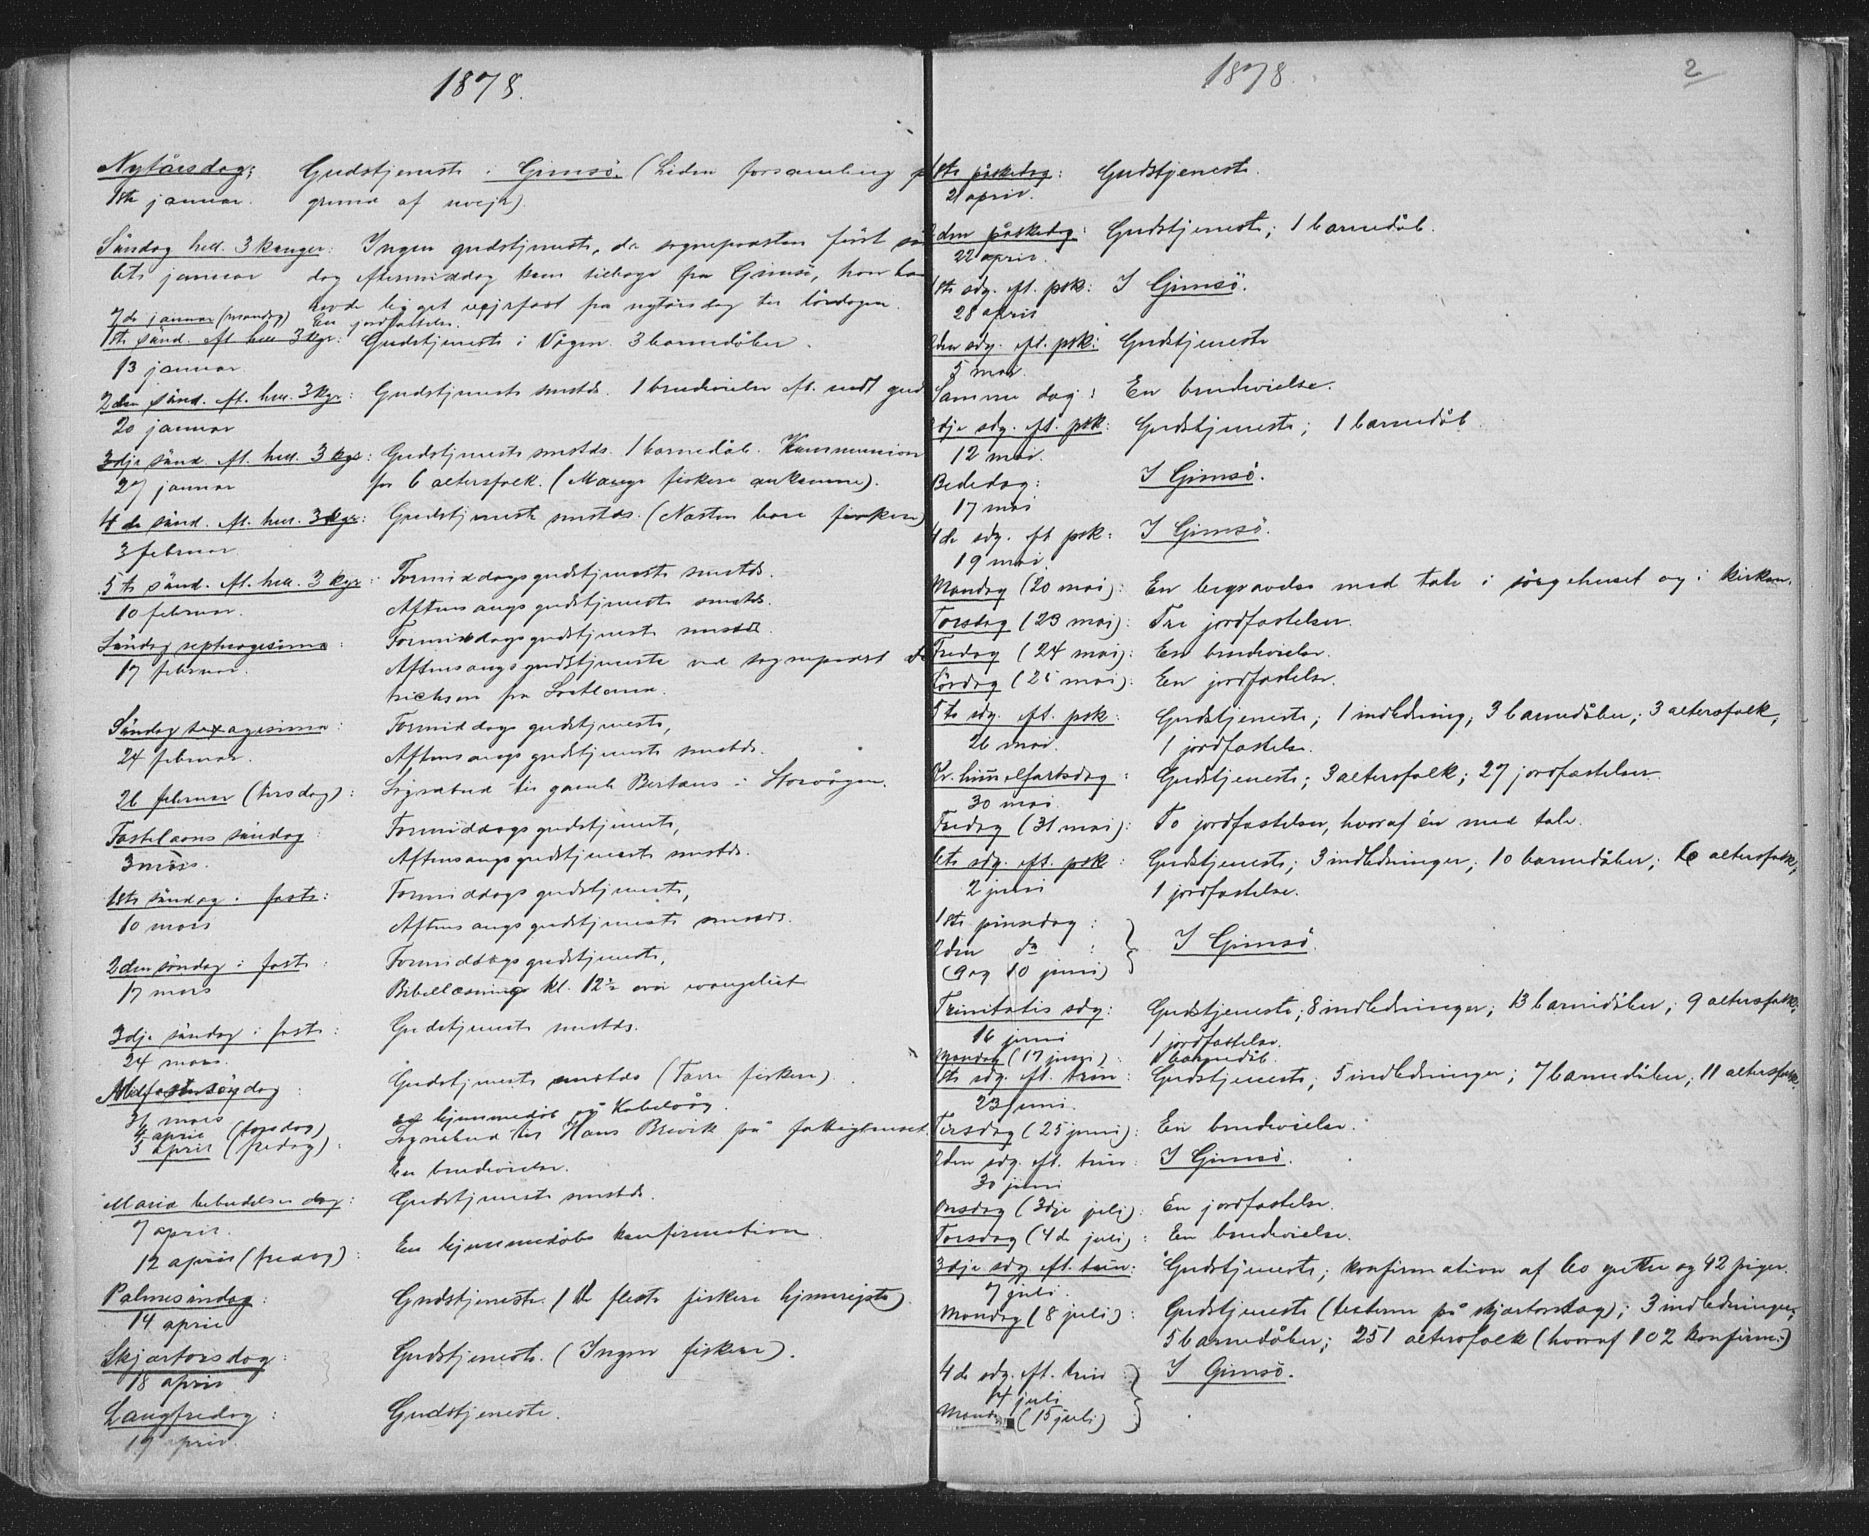 1878.
Nytårsdag: Gudstjeneste i Gimsö. (Liden forsamling p
1ste januar. grund af uvejr).
Söndag hell. 3 konger: Ingen gudstjeneste, da sognepresten först sön
6te januar dag eftermiddag kom tilbage fra Gimsö, hvor han
havde ligget vejrfast fra nytårsdag til lördagen.
7de januar (mandag) En jordfæstelse.
1ste sönd. eft. hell. 3 kgr: Gudstjeneste i Vågen. 3 barnedåber.
13 januar
2den sönd. eft. hell. 3 kgr: Gudstjeneste smstds. 1 brudevielse eft. endt gud
20 januar
3dje sönd. eft. hell. 3 kgr: Gudstjeneste smstds. 1 barnedåb. Kommunion
27 januar for 6 altersfolk. (Mange fiskere ankomne).
4de sönd. eft. hell. 3 kgr: Gudstjeneste smstds. (Næsten bare fiskere)
3 februar
5te sönd. eft. hell. 3 kgr: Formiddagsgudstjeneste smstds.
10 februar. Aftensangsgudstjeneste smstds.
Söndag septuagesima: Formiddagsgudstjeneste smstds.
17 februar. Aftensangsgudstjeneste ved sogneprest
fra
Söndag sexagesima: Formiddagsgudstjeneste,
24 februar. Aftensangsgudstjeneste smstds.
26 februar (tirsdag): Sognebud til gamle Bertæus i Storvågen.
Fastelavns söndag Formiddagsgudstjeneste,
3 mars. Aftensangsgudstjeneste smstds.
1ste söndag i faste: Formiddagsgudstjeneste,
10 mars Aftensangsgudstjeneste smstds.
2den söndag i faste: Formiddagsgudstjeneste,
17 mars Bibellæsning kl. 12½ over evangeliet
3dje söndag i faste: Gudstjeneste smstds.
24 mars.
Midfastesöndag Gudstjeneste smstds (Færre fiskere)
31 mars
4 april (torsdag) hjemmedåb på Kabelvåg.
5 april (fredag): Sognebud til Hans Brevik på fattighuset.
En brudevielse.
Maria bebudelses dag: Gudstjeneste smstds.
7 april.
12 april (fredag): En hjemmedöbs konfirmation.
Palmesöndag: Gudstjeneste. (De fleste fiskere hjemrejste).
14 april
Skjærtorsdag: Gudstjeneste. (Ingen fiskere).
18 april
Langfredag: Gudstjeneste.
19 april.
1878. 2
1ste påskedag: Gudstjeneste.
21 april.
2den påskedag: Gudstjeneste; 1 barnedåb.
22 april.
1ste sdg. eft. psk: I Gimsö.
28 april
2den sdg. eft. psk: Gudstjeneste
5 mai.
Samme dag: En brudevielse.
3dje sdg. eft. psk: Gudstjeneste; 1 barnedåb
12 mai.
Bededag: I Gimsö.
17 mai
4de sdg. eft psk: I Gimsö.
19 mai.
Mandag (20 mai): En begravelse med tale i sörgehuset og i kirken.
Torsdag (23 mai): Tre jordfæstelser.
Fredag (24 mai): En brudevielse.
Lördag (25 mai): En jordfæstelse.
5te sdg. eft. psk: Gudstjeneste; 1 indledning; 3 barnedåber; 3 altersfolk,
26 mai. 1 jordfæstelse.
Kr. himmelfartsdag: Gudstjeneste; 3 altersfolk; 27 jordfæstelser.
30 mai.
Fredag (31 mai): To jordfæstelser, hvoraf én med tale.
6te sdg. eft. psk: Gudstjeneste; 3 indledninger; 10 barnedåber; altersfolk;
2 juni 1 jordfæstelse.
1ste pinsedag:
2den do: I Gimsö.
(9 og 10 juni)
Trinitatis sdg: Gudstjeneste; 8 indledninger; 13 barnedåber; 9 altersfolk;
16 juni 1 jordfæstelse.
Mandag (17 juni): 1 barnedåb.
1ste sdg. eft. trin: Gudstjeneste; 5 indledninger; 7 barnedåber; 11 altersfolk.
23 juni.
Tirsdag (25 juni): En brudevielse.
2den sdg. eft. trin: I Gimsö.
30 juni
Onsdag (3dje juli): En jordfæstelse.
Torsdag (4de juli): En brudevielse.
3dje sdg eft. trin: Gudstjeneste; konfirmation af 60 gutter og 42 piger.
7 juli.
Mandag (8 juli): Gudstjeneste (texterne på skjærtorsdag); 3 indledninger;
5 barnedåber; 251 altersfolk (hvoraf 102 konfirm.)
4de sdg. eft. trin I Gimsö.
14 juli
Mandag (15 juli)